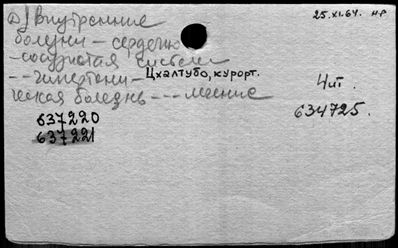 Д) Внутренние
25.XI.64. нр
болезни – сердечно
–сосудистая система
– – гипертени–
Цхалтубо, курорт.
Чит.
ческая болезнь – – – лечение
634725.
637220
637221